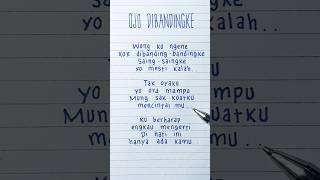 OJO DIBANDINGKE
Wong ko ngene
Kok dibanding-bandingke
Saing-saingke
yo mesti kalah..
Tak oyako
yo ora mampu
Mung sak kuatku
mencintai mu..
Ku berharap
engkau mengerti
Di hati ini
hanya ada kamu..